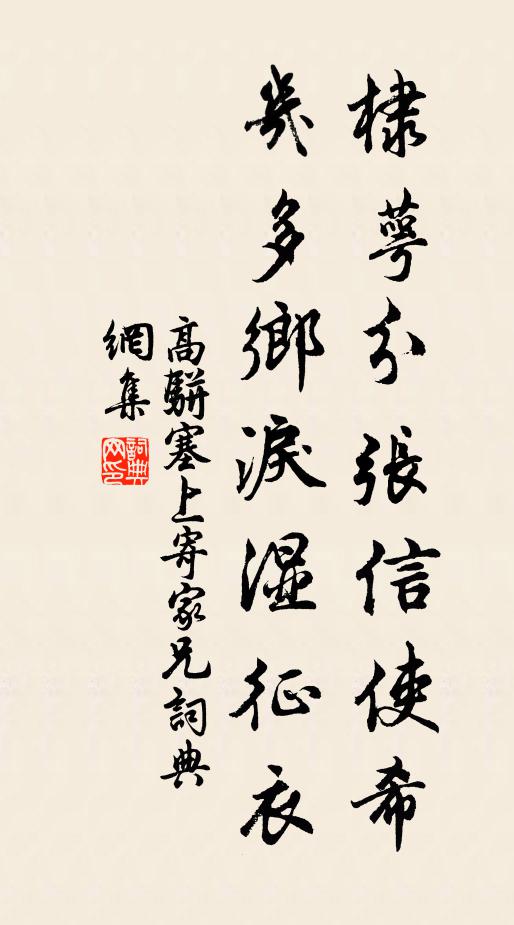 棣萼分張信使希
幾多鄉淚濕征衣
高駢塞上寄家兄詞典
網集
詞典網印